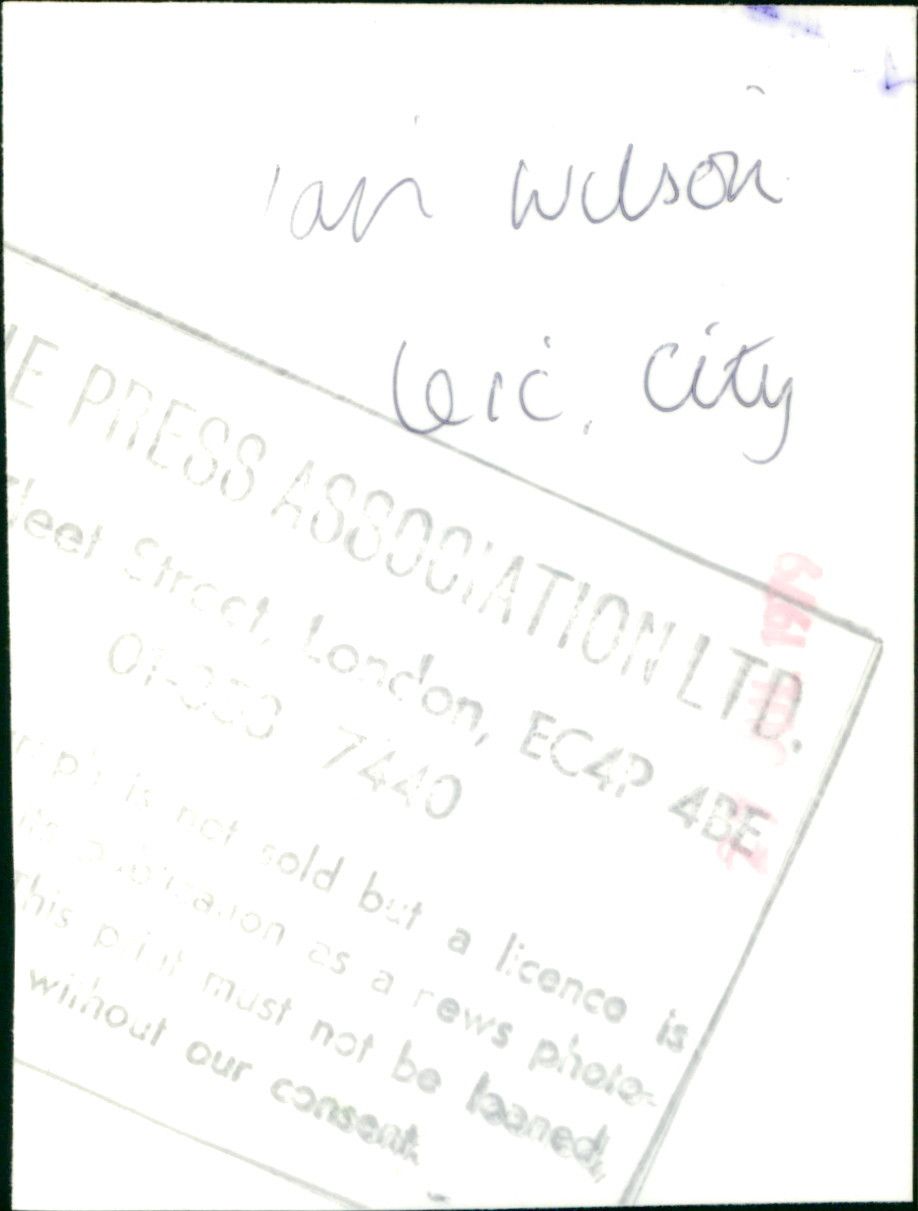 ian Wilson
Leic. City
HE PRESS ASSOCIATION LTD.
Fleet Street, London, EC4P 4BE
01-353 7440
is not sold but a licence is
publication as a news photo-
This print must not be loaned,
without our consent.